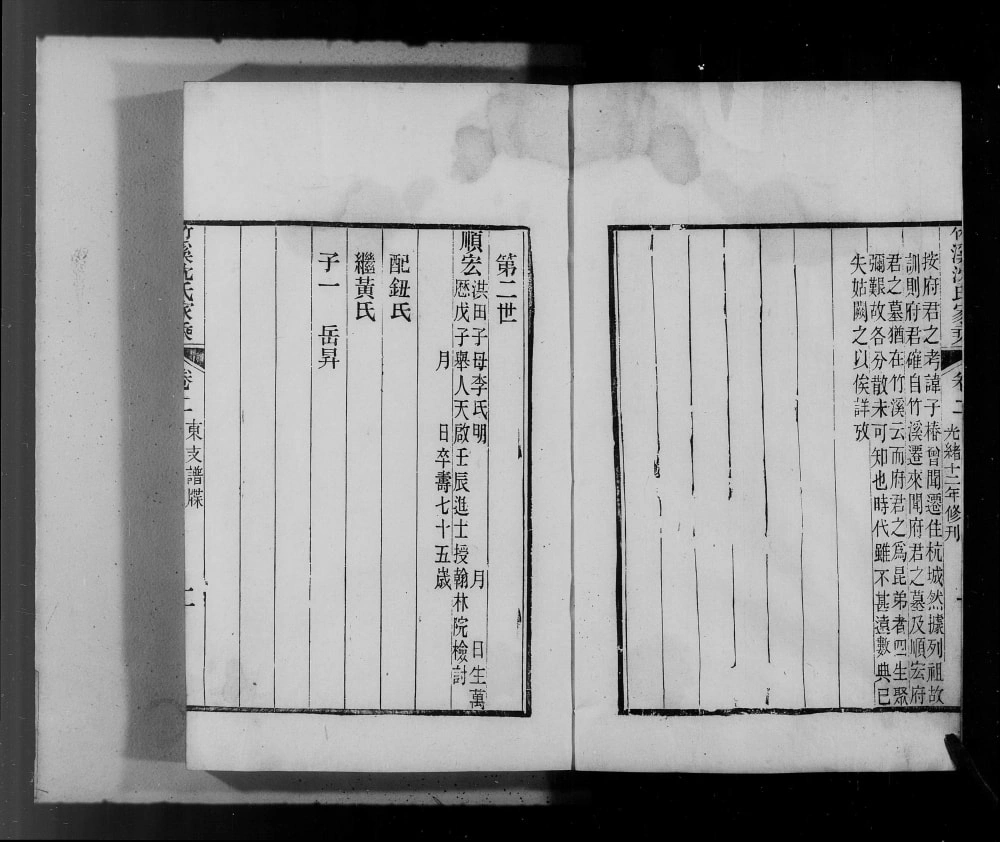 竹溪沈氏家乘
卷二
光緒十二年修刊
按府君之考諱子椿曾聞遷住杭城然據列祖故
訓則府君確自竹溪遷來聞府君之墓及順宏府
君之墓猶在竹溪云而府君之為昆弟者四生聚
彌艱故各分散未可知也時代雖不甚遠數典已
失姑闕之以俟詳攷
第二世
順宏
洪田子母李氏明 月 日生萬
厯戊子舉人天啟壬辰進士授翰林院檢討
月 日卒壽七十五歲
配鈕氏
繼黃氏
子一 岳昇
竹溪沈氏家乘
卷二
東支譜牒
二